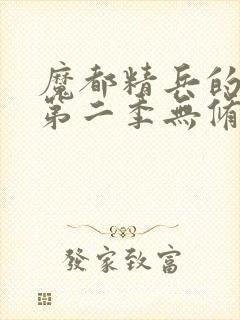 魔都精兵的
第二季無脩
發家致富